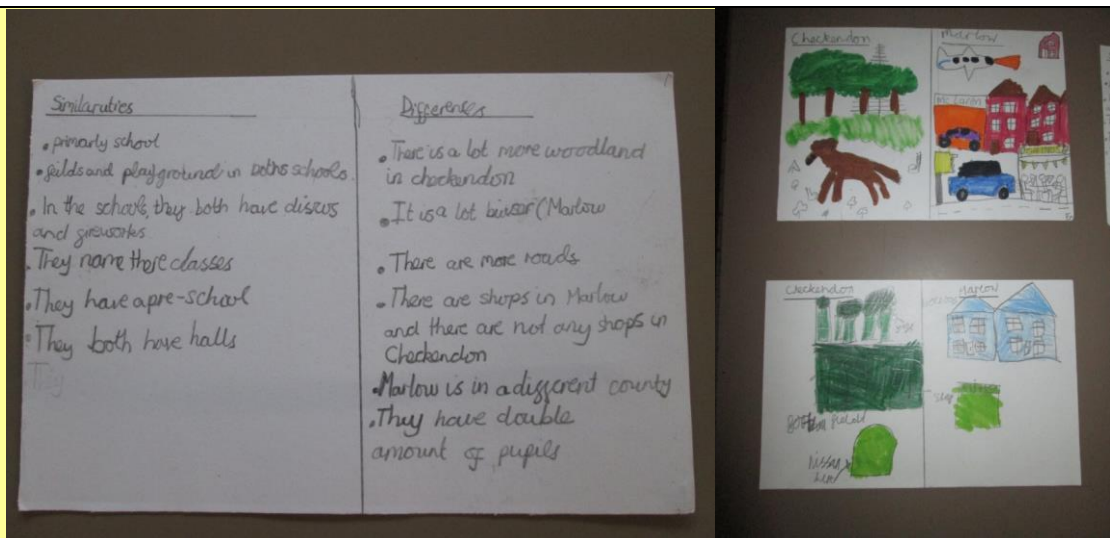 Similaruties
• primarly school
• feilds and playground in boths schools.
• In the schools, they both have discos
and fireworks
• They name there classes
• They have a pre-school
• They both have halls
They
Differenses
• There is a lot more woodland
in checkendon
• It is a lot (Marlow
• There are more roads
• There are shops in Marlow
and there are not any shops in
Checkendon
• Marlow is in a different county
• They have double
amount of pupils
Checkendon
Marlow
Mc Laren
Checkendon
Marlow
field